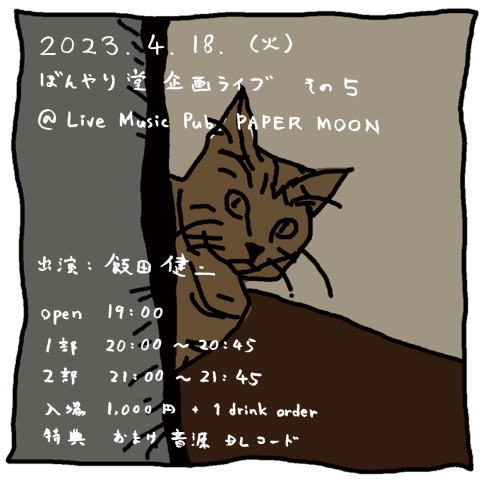 2023. 4. 18. (火)
ぼんやり堂 企画ライブ その5
@ Live Music Pub PAPER MOON
出演: 飯田健二
open 19:00
1部 20:00 〜 20:45
2部 21:00 〜 21:45
入場 1,000円 + 1 drink order
特典 おまけ音源 DLコード